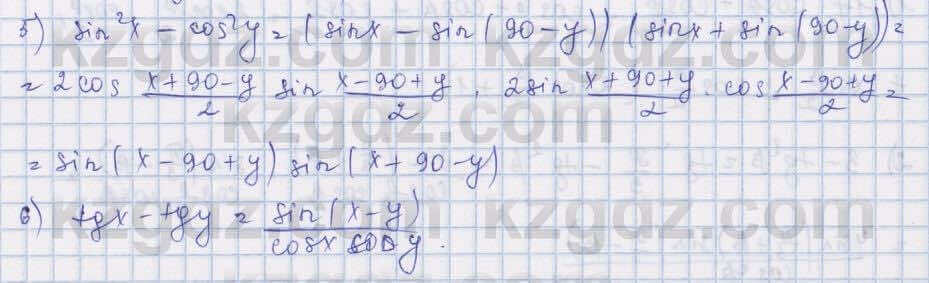 5) sin²x - cos²y = (sinx - sin(90-y))(sinx + sin(90-y)) =
= 2cos (x+90-y)/2 sin (x-90+y)/2 . 2sin (x+90+y)/2 . cos (x-90+y)/2 =
= sin(x-90+y) sin(x+90-y)
6) tgx - tgy = sin(x-y)/cosx cos y .
kzgdz.com